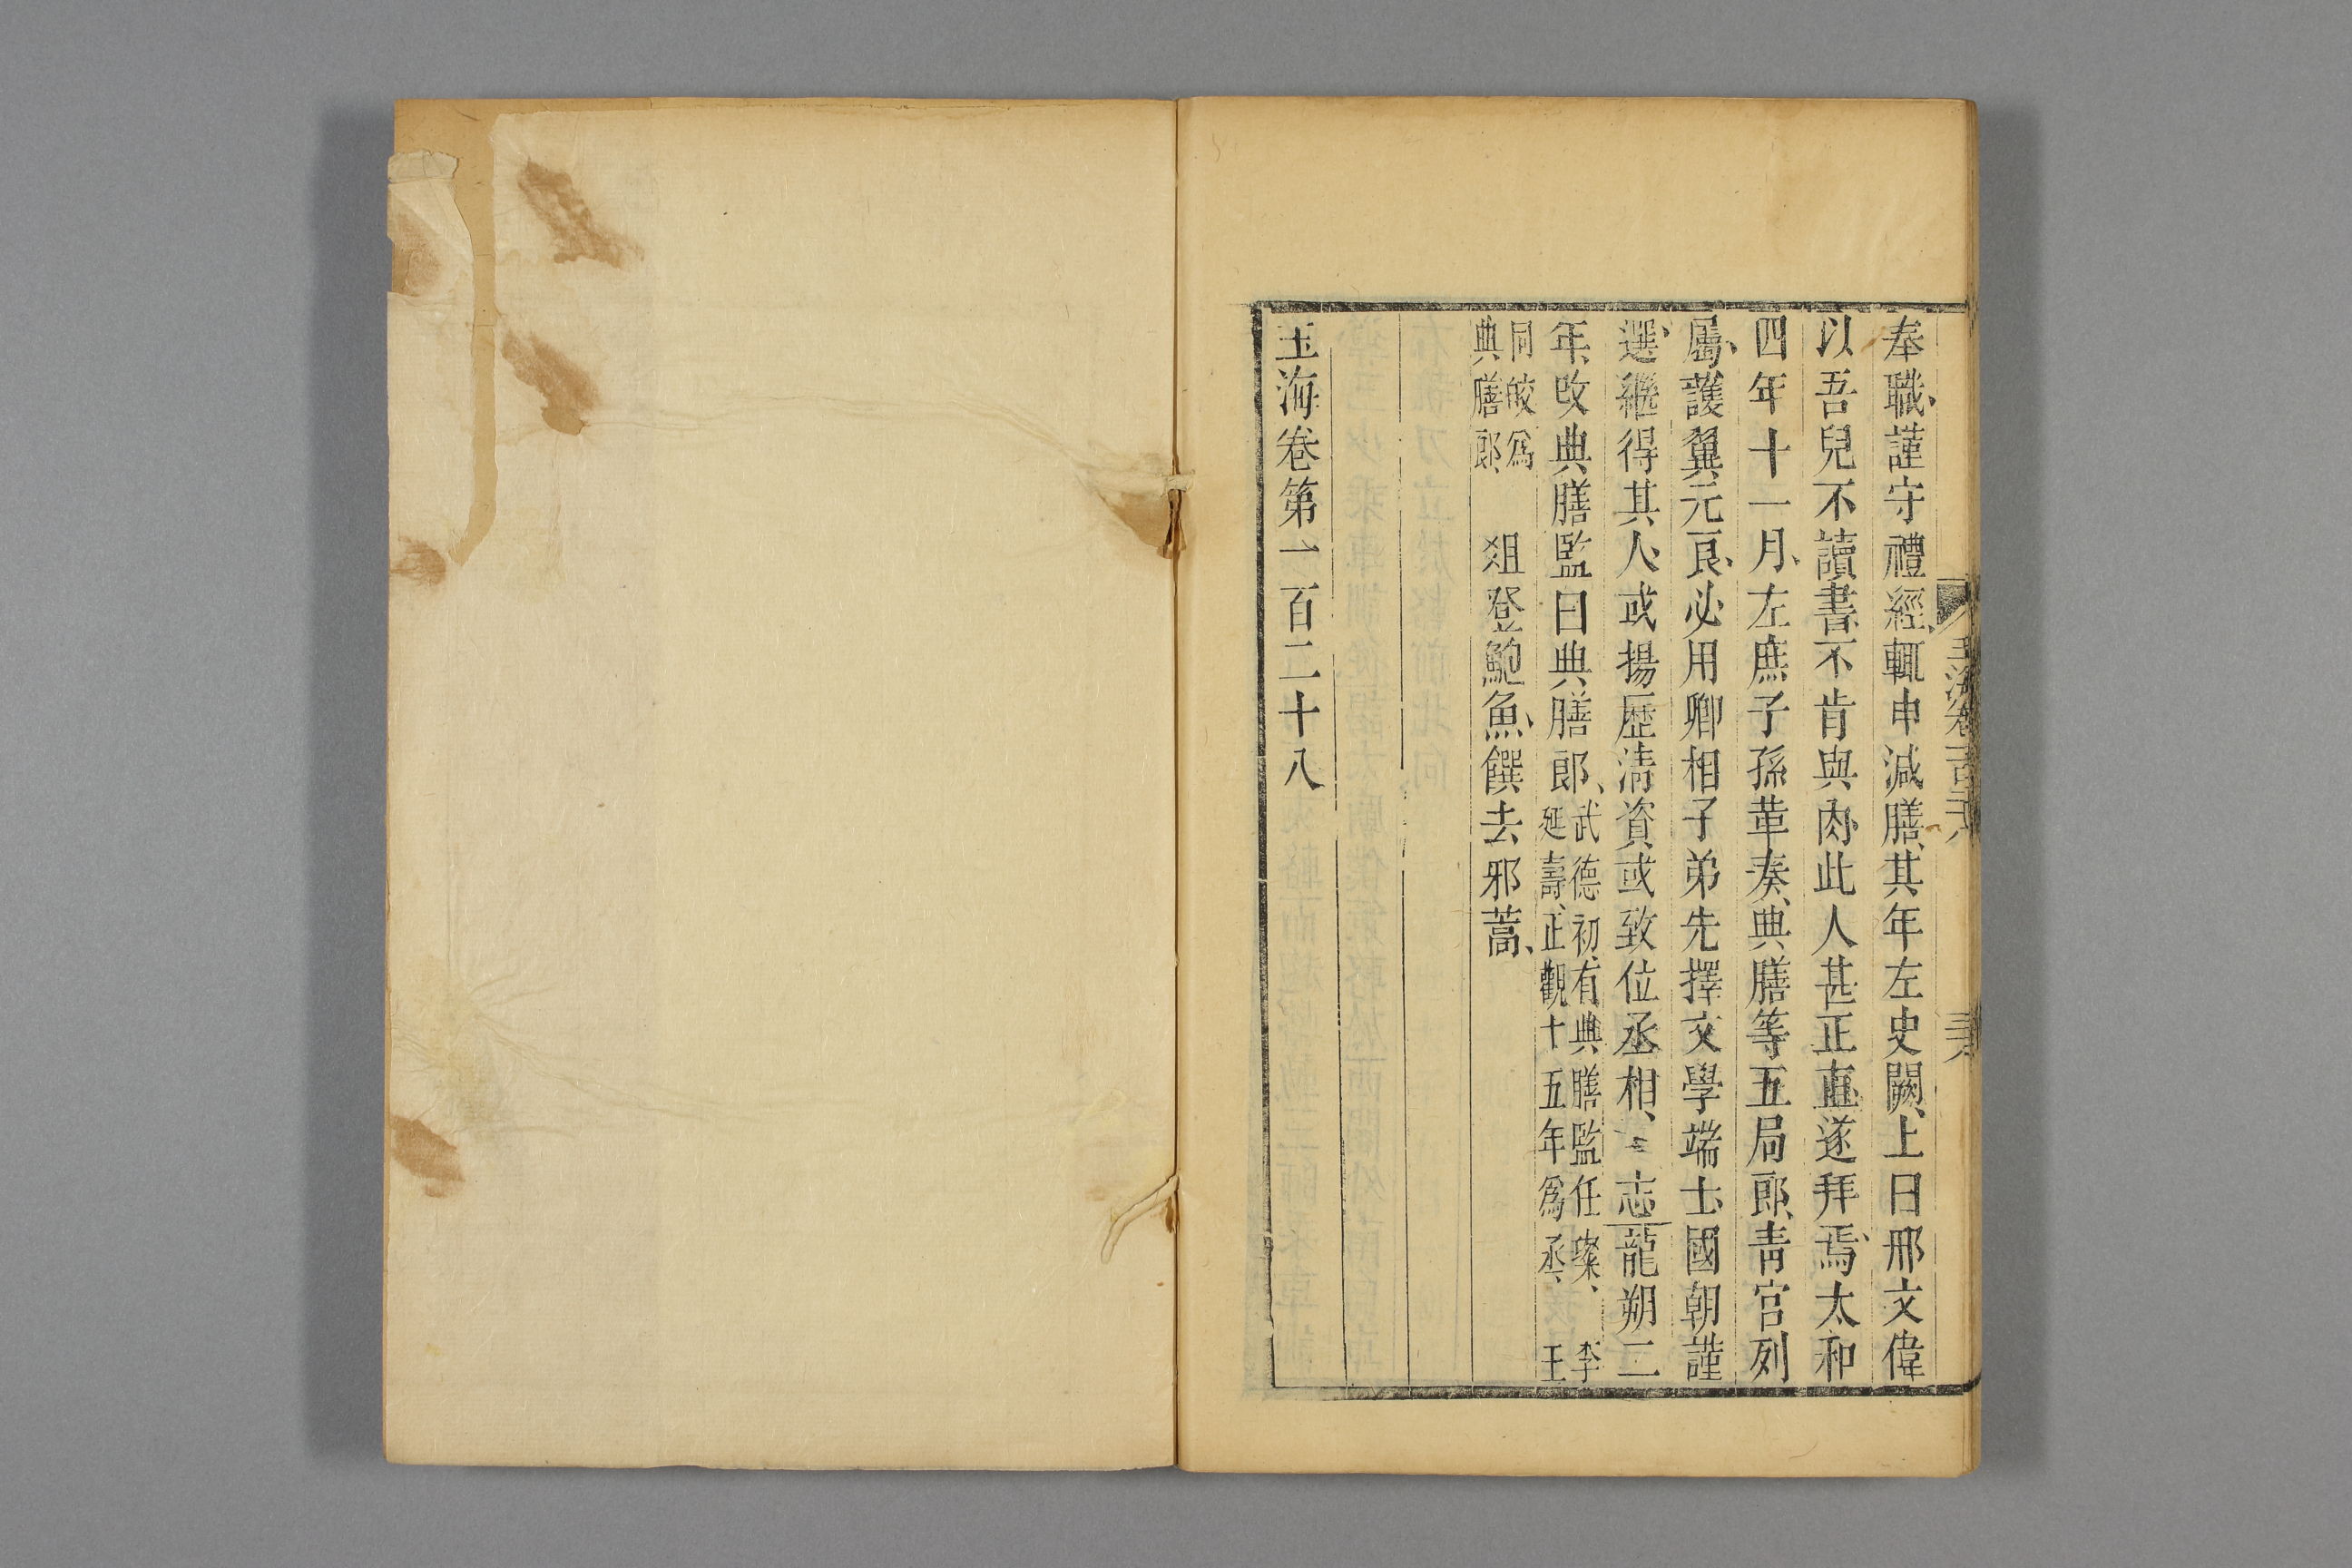 玉海卷一百二十八
奉職、謹守禮經、輒申減膳、其年左史闕、上曰邢文偉
以吾兒不讀書、不肯與肉、此人甚正直、遂拜焉、太和
四年十一月、左庶子孫革奏、典膳等五局郎、青宮列
屬、護翼元良、必用卿相子弟先擇文學端士、國朝謹
選、繼得其人、或揚歷清資、或致位丞相、志龍朔二
年、改典膳監曰典膳郎、武德初、有典膳監任璨、李
延壽、正觀十五年爲丞、王
同皎爲
典膳郎、
俎登鮑魚、饌去邪蒿、
玉海卷第一百二十八